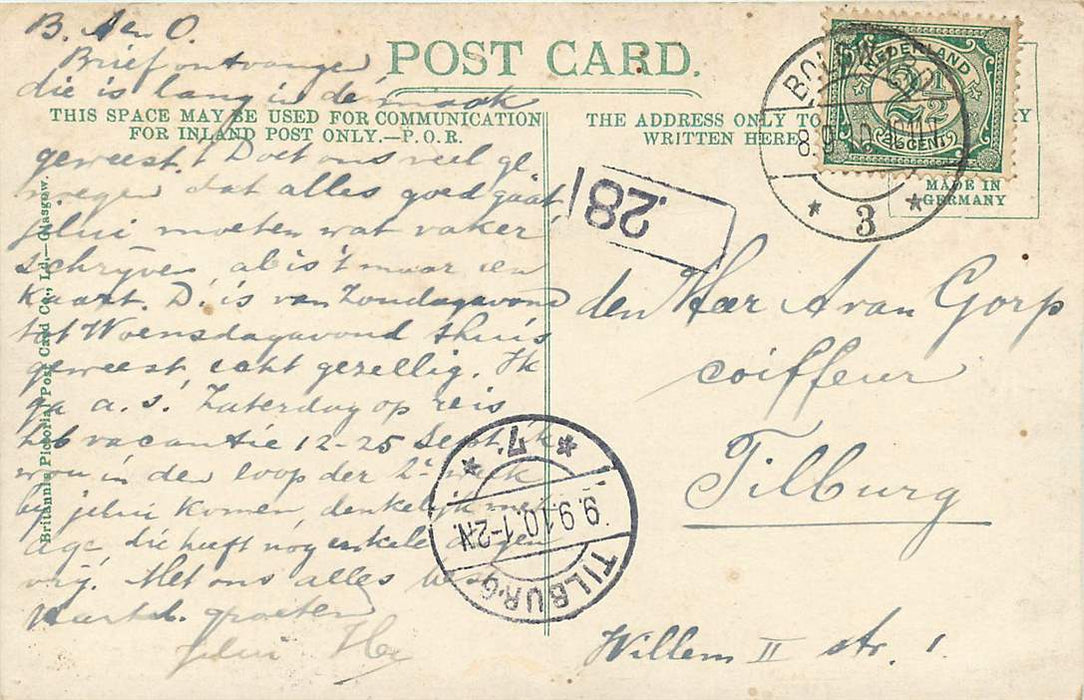 B. A en O.
Brief ontvangen
die is lang in de maak
geweest! Doet ons veel ge
noegen dat alles goed gaat,
jelui moeten wat vaker
schrijven, al is 't maar een
kaart. D. is van Zondagavond
tot Woensdagavond thuis
geweest echt gezellig. Ik
ga a.s. Zaterdag op reis
heb vacantie 12-25 Sept. ik
wou in den loop der 2e week
bij jelui komen, denkelijk met
die heeft nog enkele dagen
vrij. Met ons alles wel
Hartel. groeten
jelui
POST CARD.
THIS SPACE MAY BE USED FOR COMMUNICATION
FOR INLAND POST ONLY.—P.O.R.
THE ADDRESS ONLY TO
WRITTEN HERE
MADE IN
GERMANY
Britannia Pictorial Post Card Co., Ld., Glasgow.
NEDERLAND
2½
CENT
8.9.10
3
28
den Heer A van Gorp
coiffeur
Tilburg
Willem II str. 1.
TILBURG
9.9.10.1-2N
7